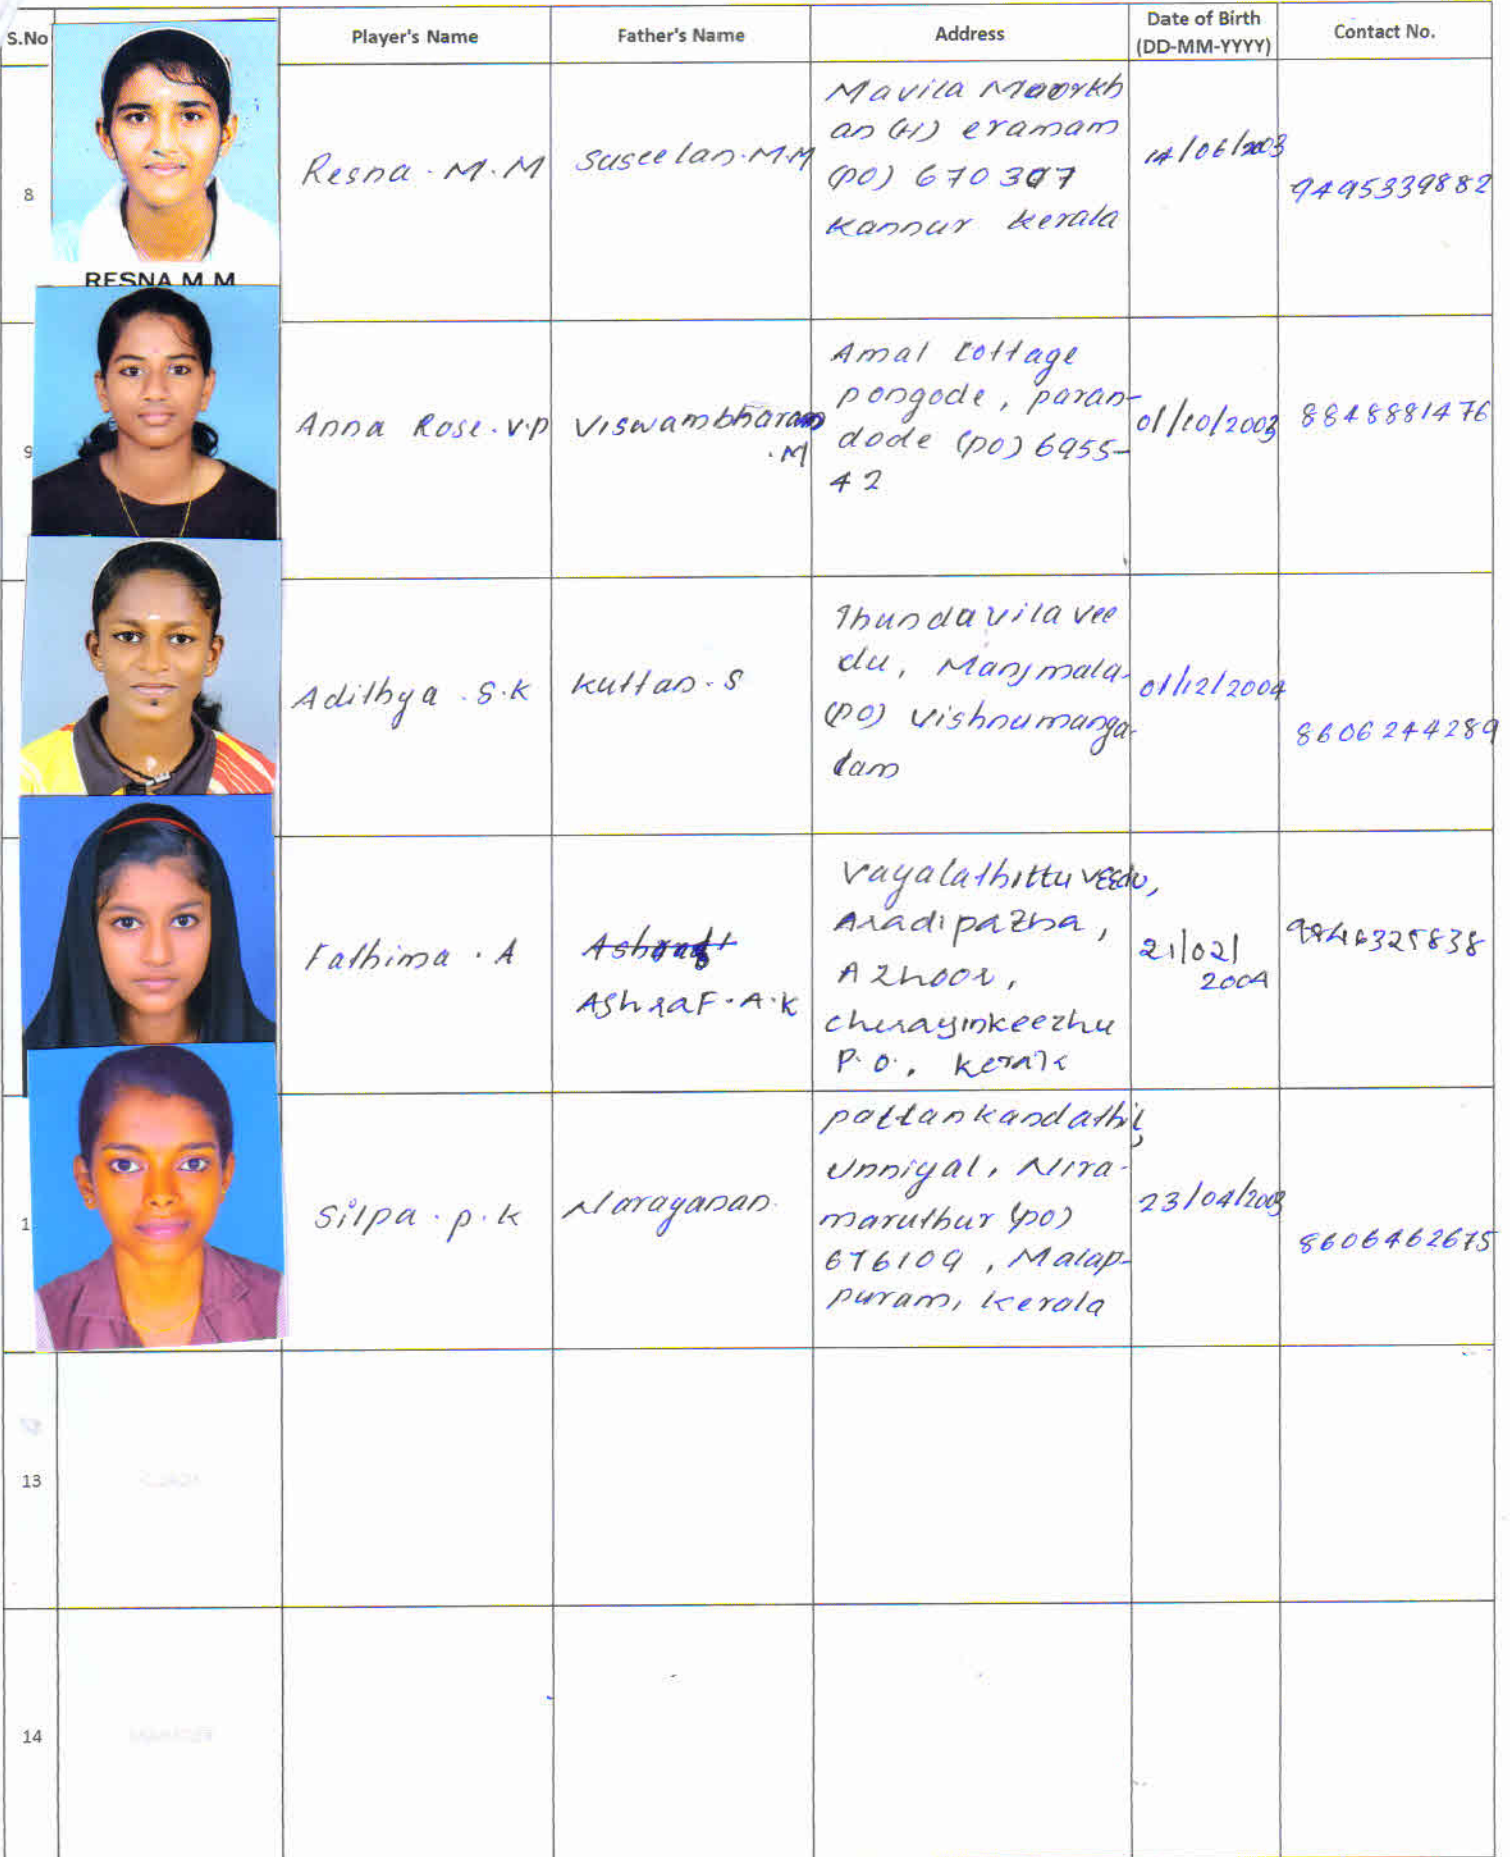 S.No Player's Name Father's Name Address Date of Birth Contact No.
(DD-MM-YYYY)
8
RESNA M M
Resna . M. M
Suseelan. M.M
Mavila Moorkh
an (H) eramam
(po) 670307
Kannur Kerala
14/06/2003
9495339882
9
Anna Rose. V.P
Viswambharan
.M
Amal Cottage
pongode, paran-
dode (po) 6955-
42
01/10/2003
8848881476
Adithya . S.K
Kuttan. S
Thundavila vee
du, Manjmala-
(po) Vishnumanga-
lam
01/12/2004
8606244289
Fathima . A
Ashraf
AShraF. A. K
Vayalathittu veedu,
Aradipazha,
Azhoor,
chirayinkeezhu
P. O., Kerala
21/02/
2004
9846325838
1
Silpa . p. k
Narayanan.
pattankandathil,
Unniyal, Nira-
maruthur (po)
676109, Malap-
puram, Kerala
23/04/2003
8606462675
13
14